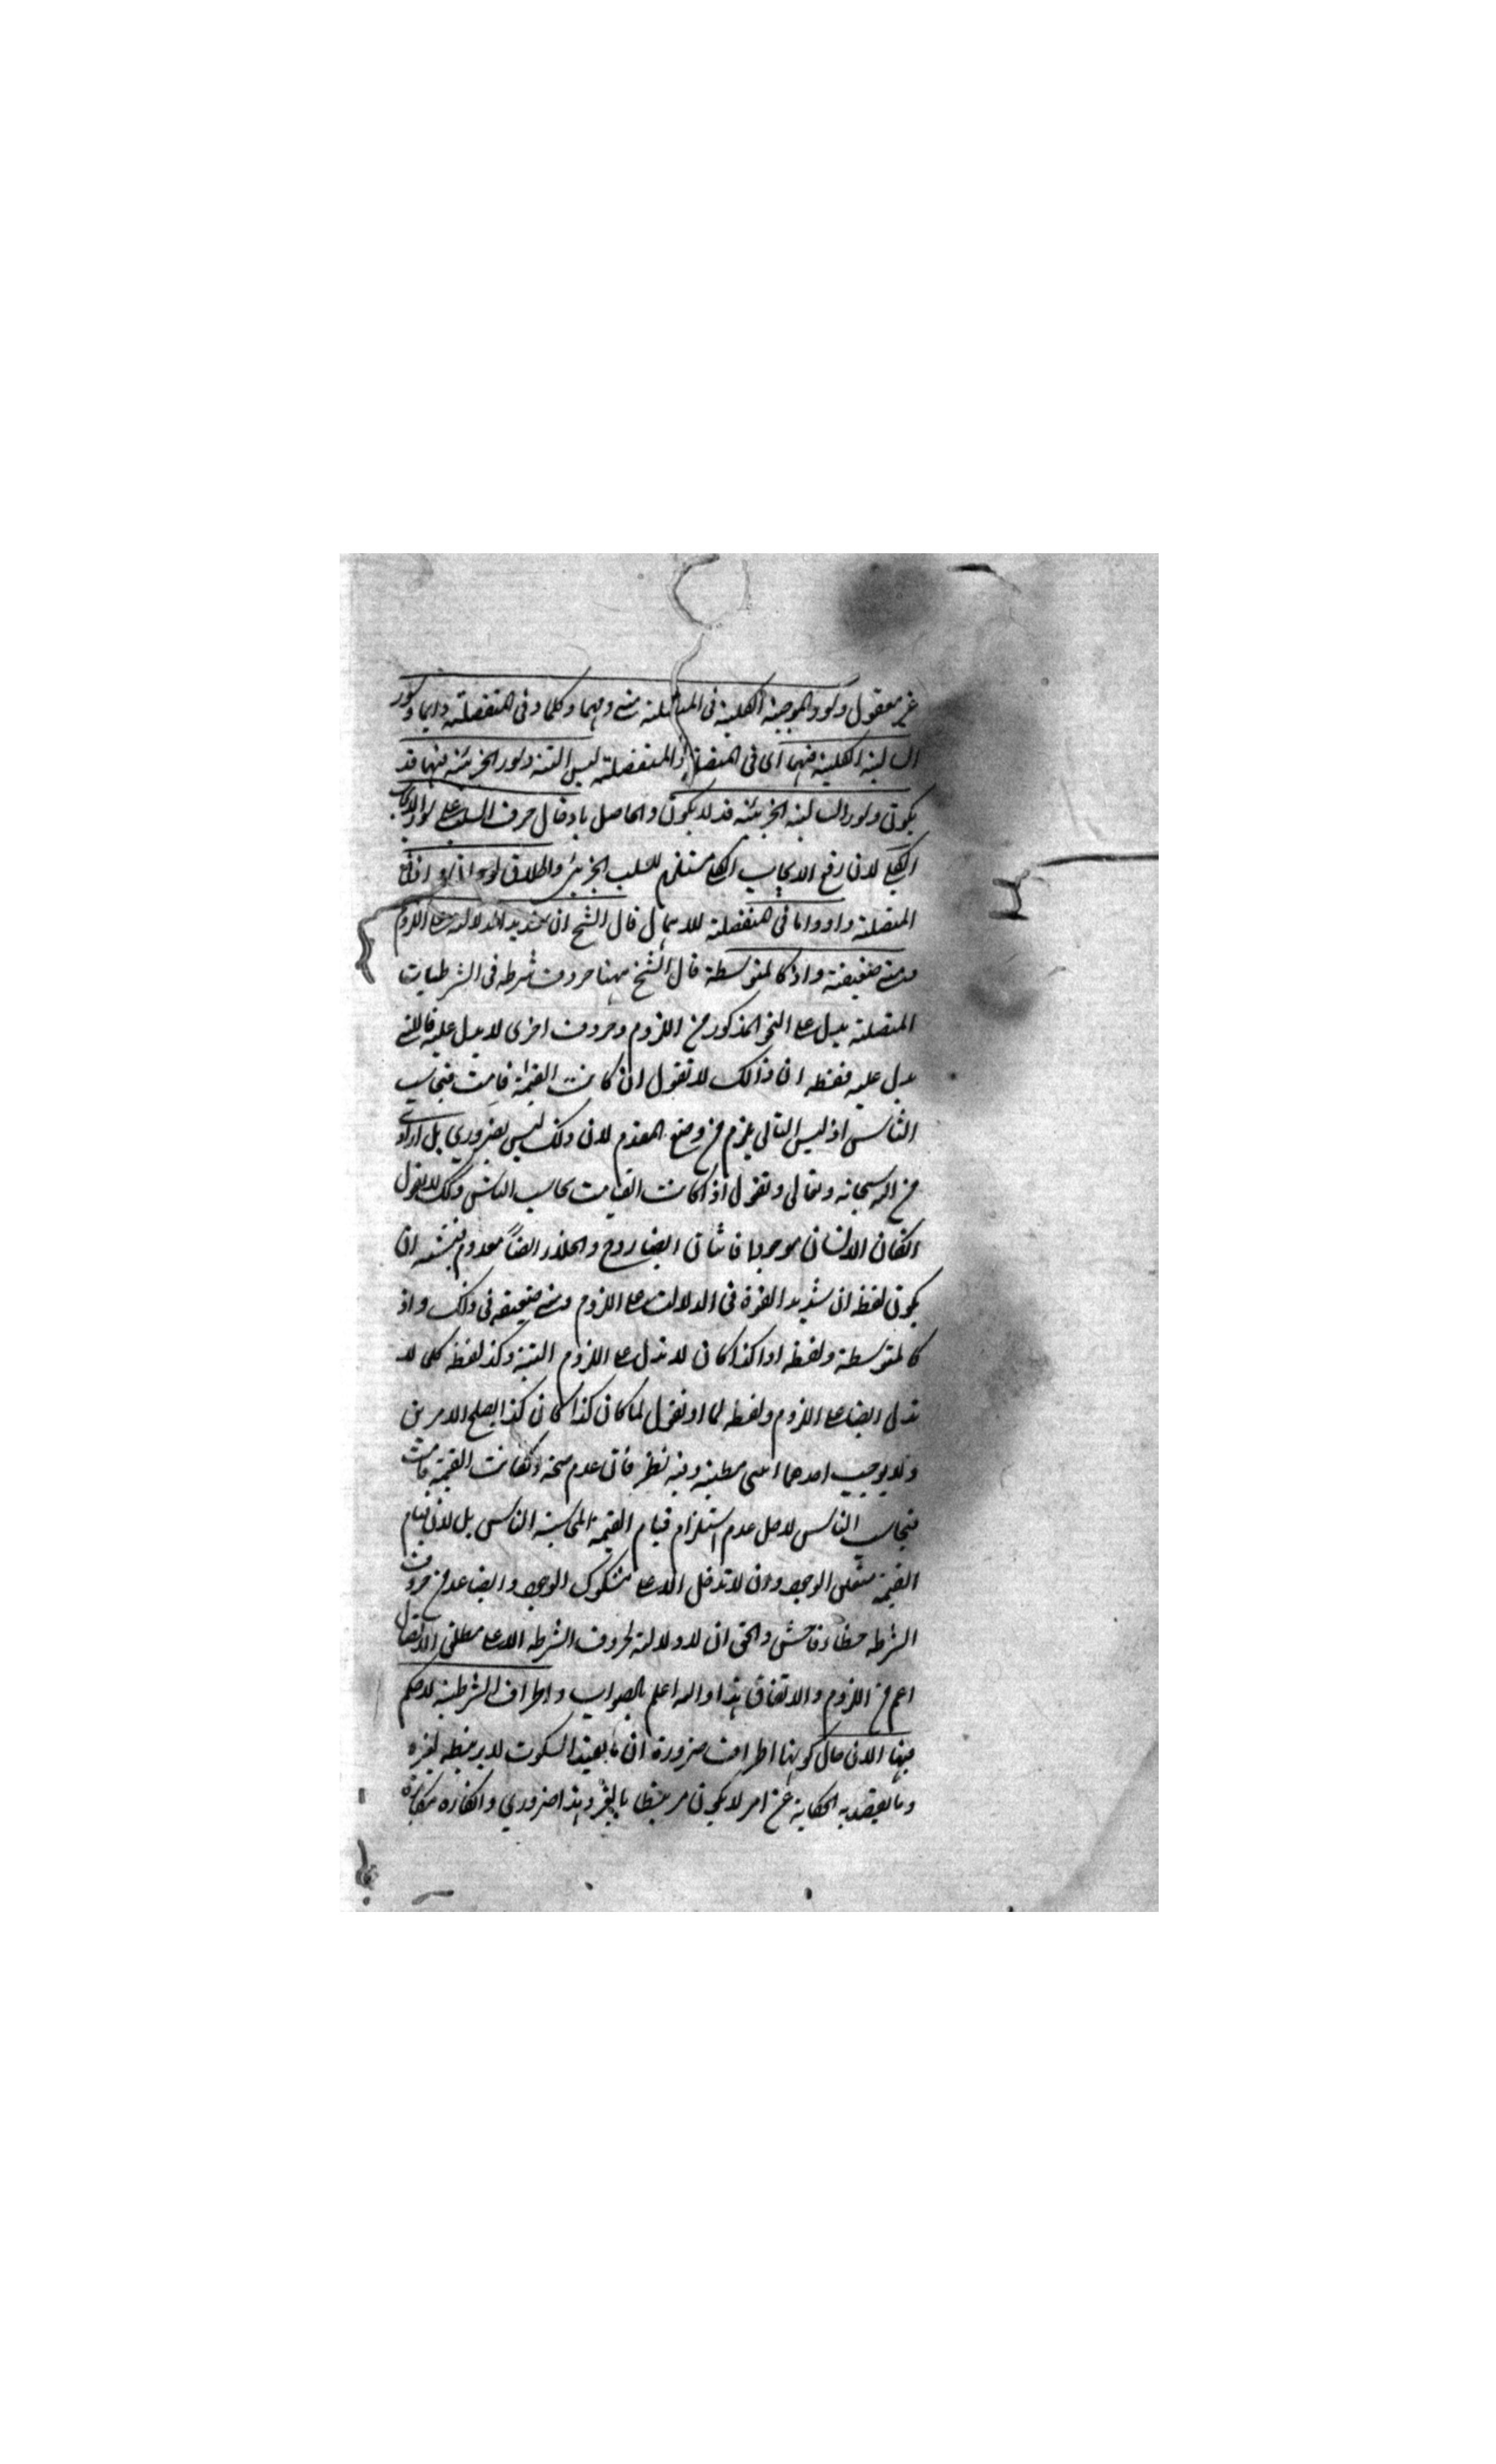 غير معقول وسور الموجبة الكلية فى المتصلة متى ومهما وكلما وفى المنفصلة دايما وسور
السالبة الكلية فيهما اى فى المتصلة والمنفصلة ليس البتة وسور الجزئية فيهما قد
يكون وسور السالبة الجزئية قد لا يكون والحاصل بادخال حرف السلب على سور الايجاب
الكلى لان رفع الايجاب الكلى مستلزم للسلب الجزئى واطلاق لو وان و اذا فى
المتصلة واو واما فى المنفصلة للاهمال قال الشيخ ان شديد الدلالة على اللزوم
ومتى ضعيفة واذ كالمتوسطة قال الشيخ ههنا حروف شرطه فى الشرطيات
المتصلة يدل على النحو المذكور من اللزوم وحروف اخرى لا يدل عليه فاللتى
يدل عليه فلفظه ان فذالك لا تقول ان كانت القيمة قامت فيحاسب
الناس اذ ليس التالى يلزم من وضع المقدم لان ذلك ليس بضرورى بل ارادى
من الله سبحانه وتعالى وتقول اذا كانت القيامت يحاسب الناس وكك لا تقول
انكان الانسان موجودا فاثنان ايضا زوج والخلاء ايضاً معدوم فيشبه ان
يكون لفظ ان شديد القوة فى الدلالت على اللزوم ومتى ضعيفه فى ذلك واذ
كالمتوسطة ولفظه اذا كذا كان لا تدل على اللزوم البتة وكذ لفظه كلما لا
تدل ايضا على اللزوم ولفظه لما اذ تقول لما كان كذا كان كذا يصلح الامرين
ولا يوجب احدهما انتهى وفيه نظر فان عدم صحة انكانت القيمة قامت
فيحاسب الناس لا جل عدم استلزام قيام القيمة المحاسبة الناس بل لان قيام
القيمة متيقن الوجود وان لا تدخل الا على مشكوك الوجود وايضا عد من حروف
الشرطه خطاء فاحش والحق ان لا دلالة لحروف الشرطه الا على مطلق الاتصال
اعم من اللزوم والاتفاق هذا والله اعلم بالصواب واطراف الشرطية لا حكم
فيها الان حال كونها اطرافا ضرورة ان ما يفيد السكوت لا يرتبطه لغيره
وما يقصد به الحكاية عن امر لا يكون مرتبطا بالغير وهذا ضرورى وانكاره مكابرة